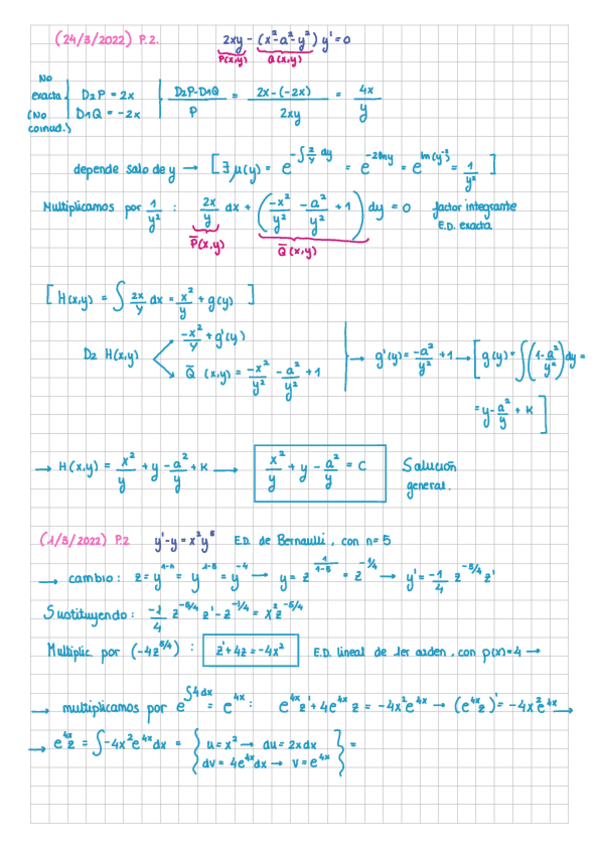 (24/3/2022) P.2. 2xy - (x²-a²-y²) y' = 0
P(x,y) Q(x,y)
No exacta (No coincid.) D₂P = 2x D₁Q = -2x | (D₂P-D₁Q)/P = (2x-(-2x))/(2xy) = 4x/y
depende solo de y → [∃ μ(y) = e^(-∫2/y dy) = e^(-2lny) = e^(ln(y⁻²)) = 1/y²]
Multiplicamos por 1/y² : 2x/y dx + (-x²/y² - a²/y² + 1) dy = 0 factor integrante
E.D. exacta
P̄(x,y) Q̄(x,y)
[H(x,y) = ∫ 2x/y dx = x²/y + g(y)]
D₂ H(x,y) -x²/y + g'(y)
Q̄ (x,y) = -x²/y² - a²/y² + 1 → g'(y) = -a²/y² + 1 → [g(y) = ∫(1-a²/y²)dy =
= y - a²/y + K]
→ H(x,y) = x²/y + y - a²/y + K → x²/y + y - a²/y = C Solución
general.
(1/3/2022) P.2 y'-y = x²y⁵ E.D. de Bernaulli, con n=5
→ cambio: z = y^(1-n) = y^(1-5) = y⁻⁴ → y = z^(1/(1-5)) = z^(-1/4) → y' = -1/4 z^(-5/4) z'
Sustituyendo: -1/4 z^(-5/4) z' - z^(-1/4) = x² z^(-5/4)
Multiplic por (-4z^(5/4)) : z'+4z = -4x² E.D. lineal de 1er orden, con p(x)=4 →
→ multiplicamos por e^(∫4dx) = e^(4x) : e^(4x) z' + 4e^(4x) z = -4x²e^(4x) → (e^(4x) z)' = -4x²e^(4x) →
→ e^(4x) z = ∫-4x²e^(4x) dx = { u = x² → du = 2xdx
dv = 4e^(4x) dx → v = e^(4x) } =